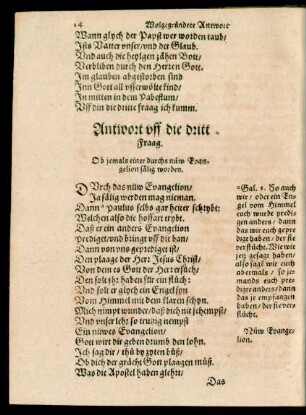 14 Wolgegründete Antwort
Wann glych der Papst wer worden taub/
Ists Vatter vnser/vnd der Glaub.
Vnd auch die heylgen zähen Bott/
Verbliben durch den Herren Gott.
Im glauben abgestorben sind
Jnn Gott all vsserwölte kind/
Jn mitten in dem Pabestum/
Vff din die dritte fraag ich kumm.
Antwort vff die dritt
Fraag.
Ob jemals einer durchs nüw Euan-
gelion sälig worden.
DVrch das nüw Euangelion/
Ja sälig werden mag nieman.
Dann * Paulus selbs gar heiter schrybt:
Welchen also die hoffart trybt.
Daß er ein anders Euangelion
prediget/vnd bringt vff die ban/
Dann von vns geprediget ist/
Den plaage der Herr Jesus Christ/
Von dem es Gott der Herr erflüch/
Den solt jhr haben für ein flüch:
Vnd solt er glych ein Engel syn
Vom Himmel mit dem klaren schyn.
Mich nimpt wunder/daß dich nit schempst/
Vnd vnser lehr so trutzig nempst
Ein nüwes Euangelion/
Gott wirt dir geben drumb den lohn.
Jch sag dir/ thu by zyten büß/
Ob dich der grächt Gott plaagen müß.
Was die Apostel haben glehrt/
Das
*Gal. 1. So auch
wir/ oder ein En-
gel vom Himmel
euch wurdt predi-
gen anders / dann
das wir euch gepre-
diget haben/ der sie
verflücht. Wie wir
jetz gesagt haben/
also sage wir euch
abermals / so je-
mands euch pre-
diget anders/ dann
das jr empfangen
haben/ der sie ver-
flücht.
Nüw Euange-
lion.